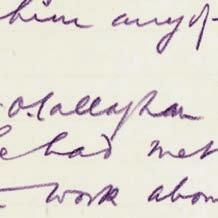 him any of
O'Callaghan
he had met
work abou